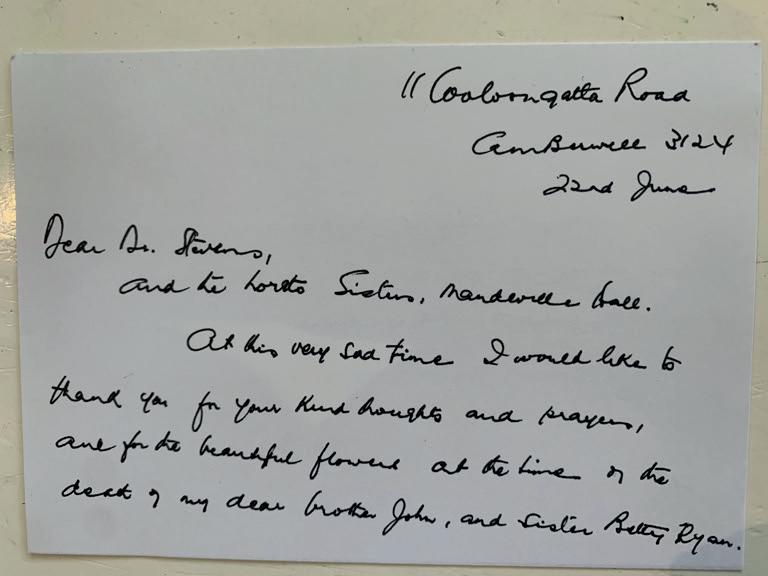 11 Cooloongatta Road
Camberwell 3124
22nd June
Dear Dr. Stevens,
and the Loreto Sisters, Mandeville Hall.
At this very sad time I would like to
thank you for your kind thoughts and prayers,
and for the beautiful flowers at the time of the
death of my dear brother John, and sister Betty Ryan.